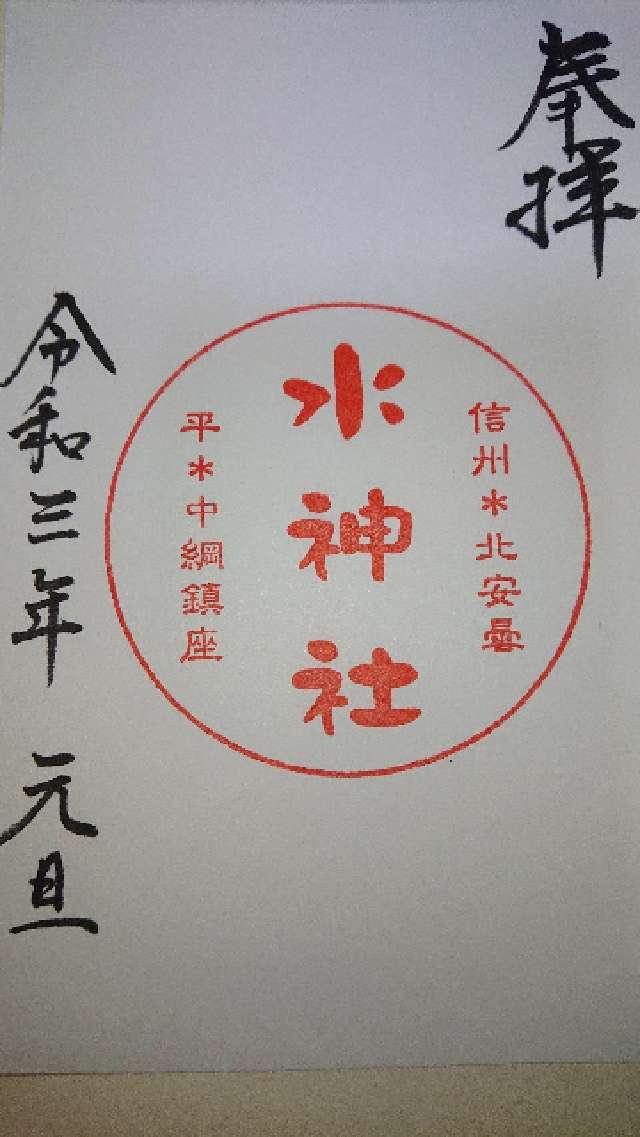 奉拝
信州＊北安曇
水神社
平＊中綱鎮座
令和三年 元旦